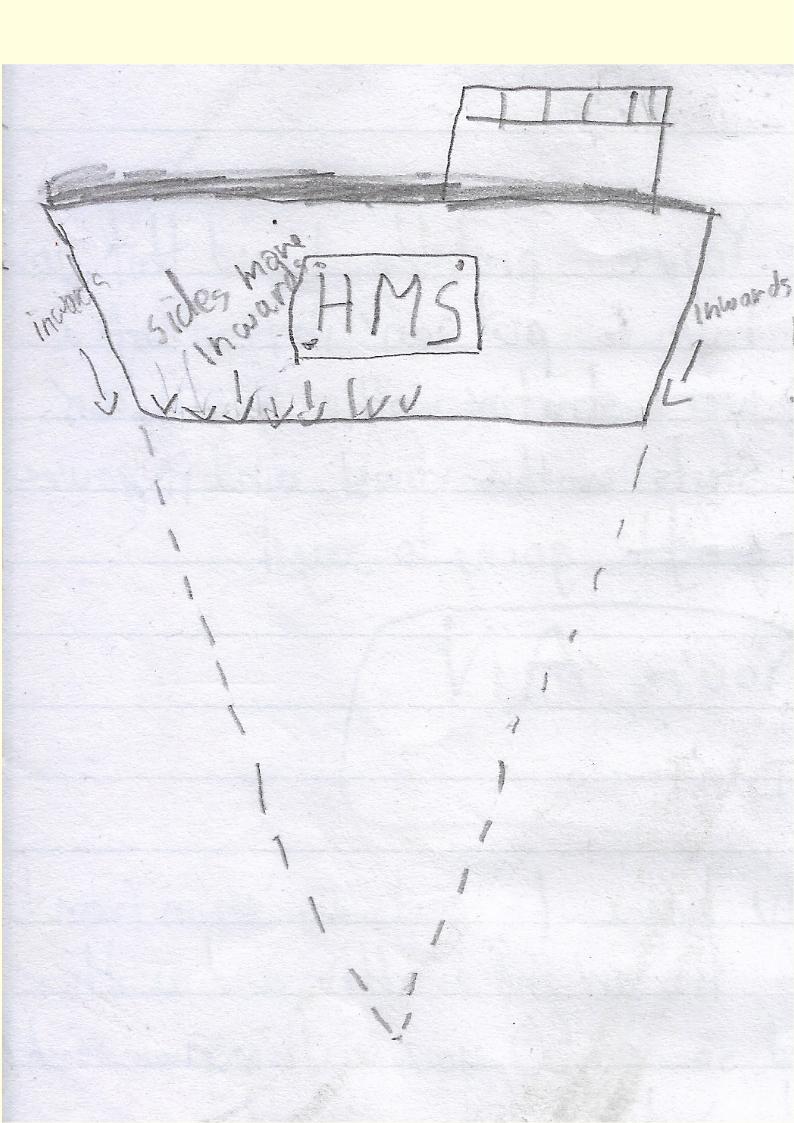 inwards
sides move
Inwards
HMS
Inwards